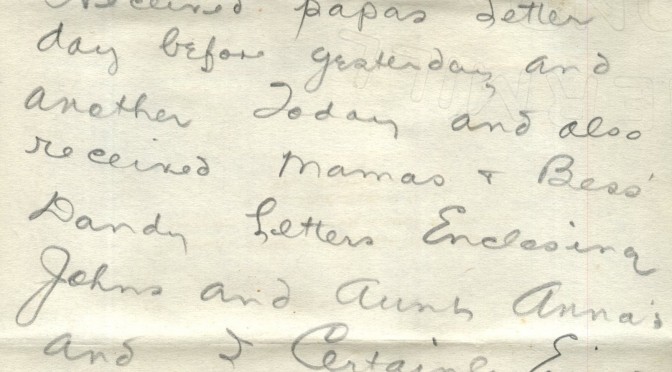 received papas Letter
day before yesterday and
another Today and also
received Mamas + Bess'
Dandy Letters Enclosing
Johns and Aunt Anna's
and I